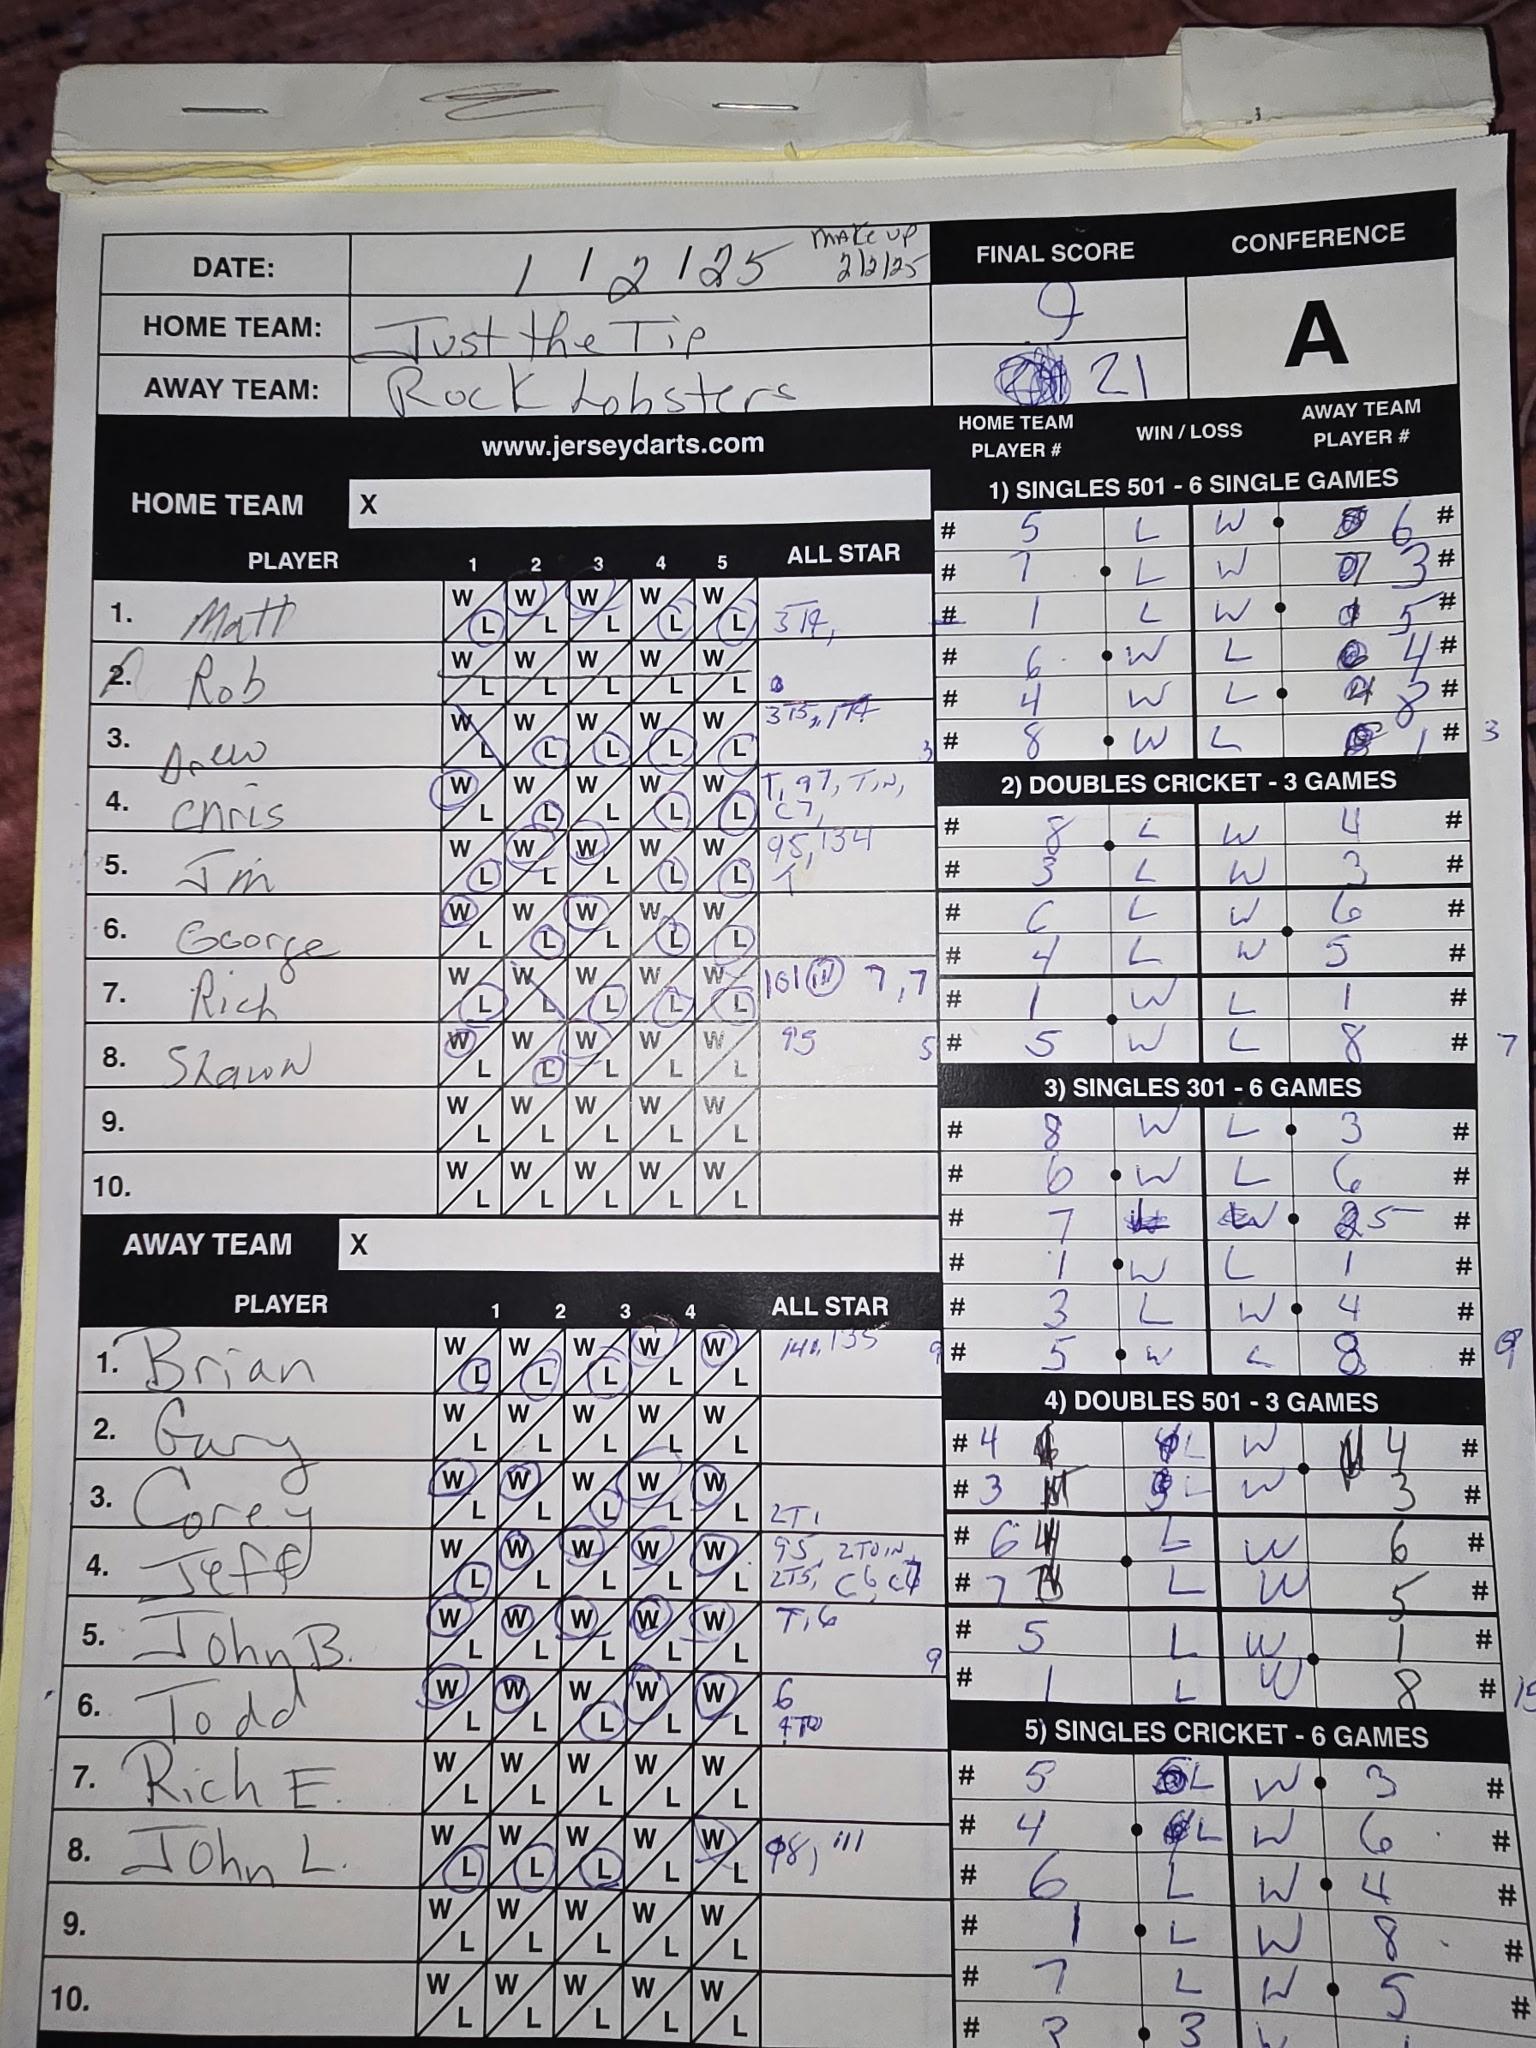 DATE: 1 / 12 / 25 MAKE UP 2/2/25
FINAL SCORE CONFERENCE
HOME TEAM: Just the Tip 9 A
AWAY TEAM: Rock Lobsters 21
www.jerseydarts.com
HOME TEAM PLAYER # WIN / LOSS AWAY TEAM PLAYER #
HOME TEAM X
PLAYER 1 2 3 4 5 ALL STAR
1. Matt W L W L W L W L W L
2. Rob W L W L W L W L W L
3. Drew W L W L W L W L W L 3
4. Chris W L W L W L W L W L T, 97, T, N, C7,
5. Jim W L W L W L W L W L 95, 134 T
6. George W L W L W L W L W L
7. Rich W L W L W L W L W L 101 111 7, 7
8. Shawn W L W L W L W L W L 95 5
9. W L W L W L W L W L
10. W L W L W L W L W L
AWAY TEAM X
PLAYER 1 2 3 4 ALL STAR
1. Brian W L W L W L W L W L 140, 135 9
2. Gary W L W L W L W L W L
3. Corey W L W L W L W L W L 2T1
4. Jeff W L W L W L W L W L 95, 2TO IN, 2T5, C6, C7
5. John B. W L W L W L W L W L T, 6 9
6. Todd W L W L W L W L W L 6
7. Rich E. W L W L W L W L W L
8. John L. W L W L W L W L W L 98, 111
9. W L W L W L W L W L
10. W L W L W L W L W L
1) SINGLES 501 - 6 SINGLE GAMES
# 5 L W 6 #
# 7 L W 3 #
# 1 L W 5 #
# 6 W L 4 #
# 4 W L 8 #
# 8 W L 1 # 3
2) DOUBLES CRICKET - 3 GAMES
# 8 L W 4 #
# 3 L W 3 #
# 6 L W 6 #
# 4 L W 5 #
# 1 W L 1 #
# 5 W L 8 # 7
3) SINGLES 301 - 6 GAMES
# 8 W L 3 #
# 6 W L 6 #
# 7 L W 5 #
# 1 W L 1 #
# 3 L W 4 #
# 5 W L 8 # 9
4) DOUBLES 501 - 3 GAMES
# 4 L W 4 #
# 3 L W 3 #
# 6 L W 6 #
# 7 L W 5 #
# 5 L W 1 #
# 1 L W 8 # 15
5) SINGLES CRICKET - 6 GAMES
# 5 L W 3 #
# 4 L W 6 #
# 6 L W 4 #
# 1 L W 8 #
# 7 L W 5 #
# 3